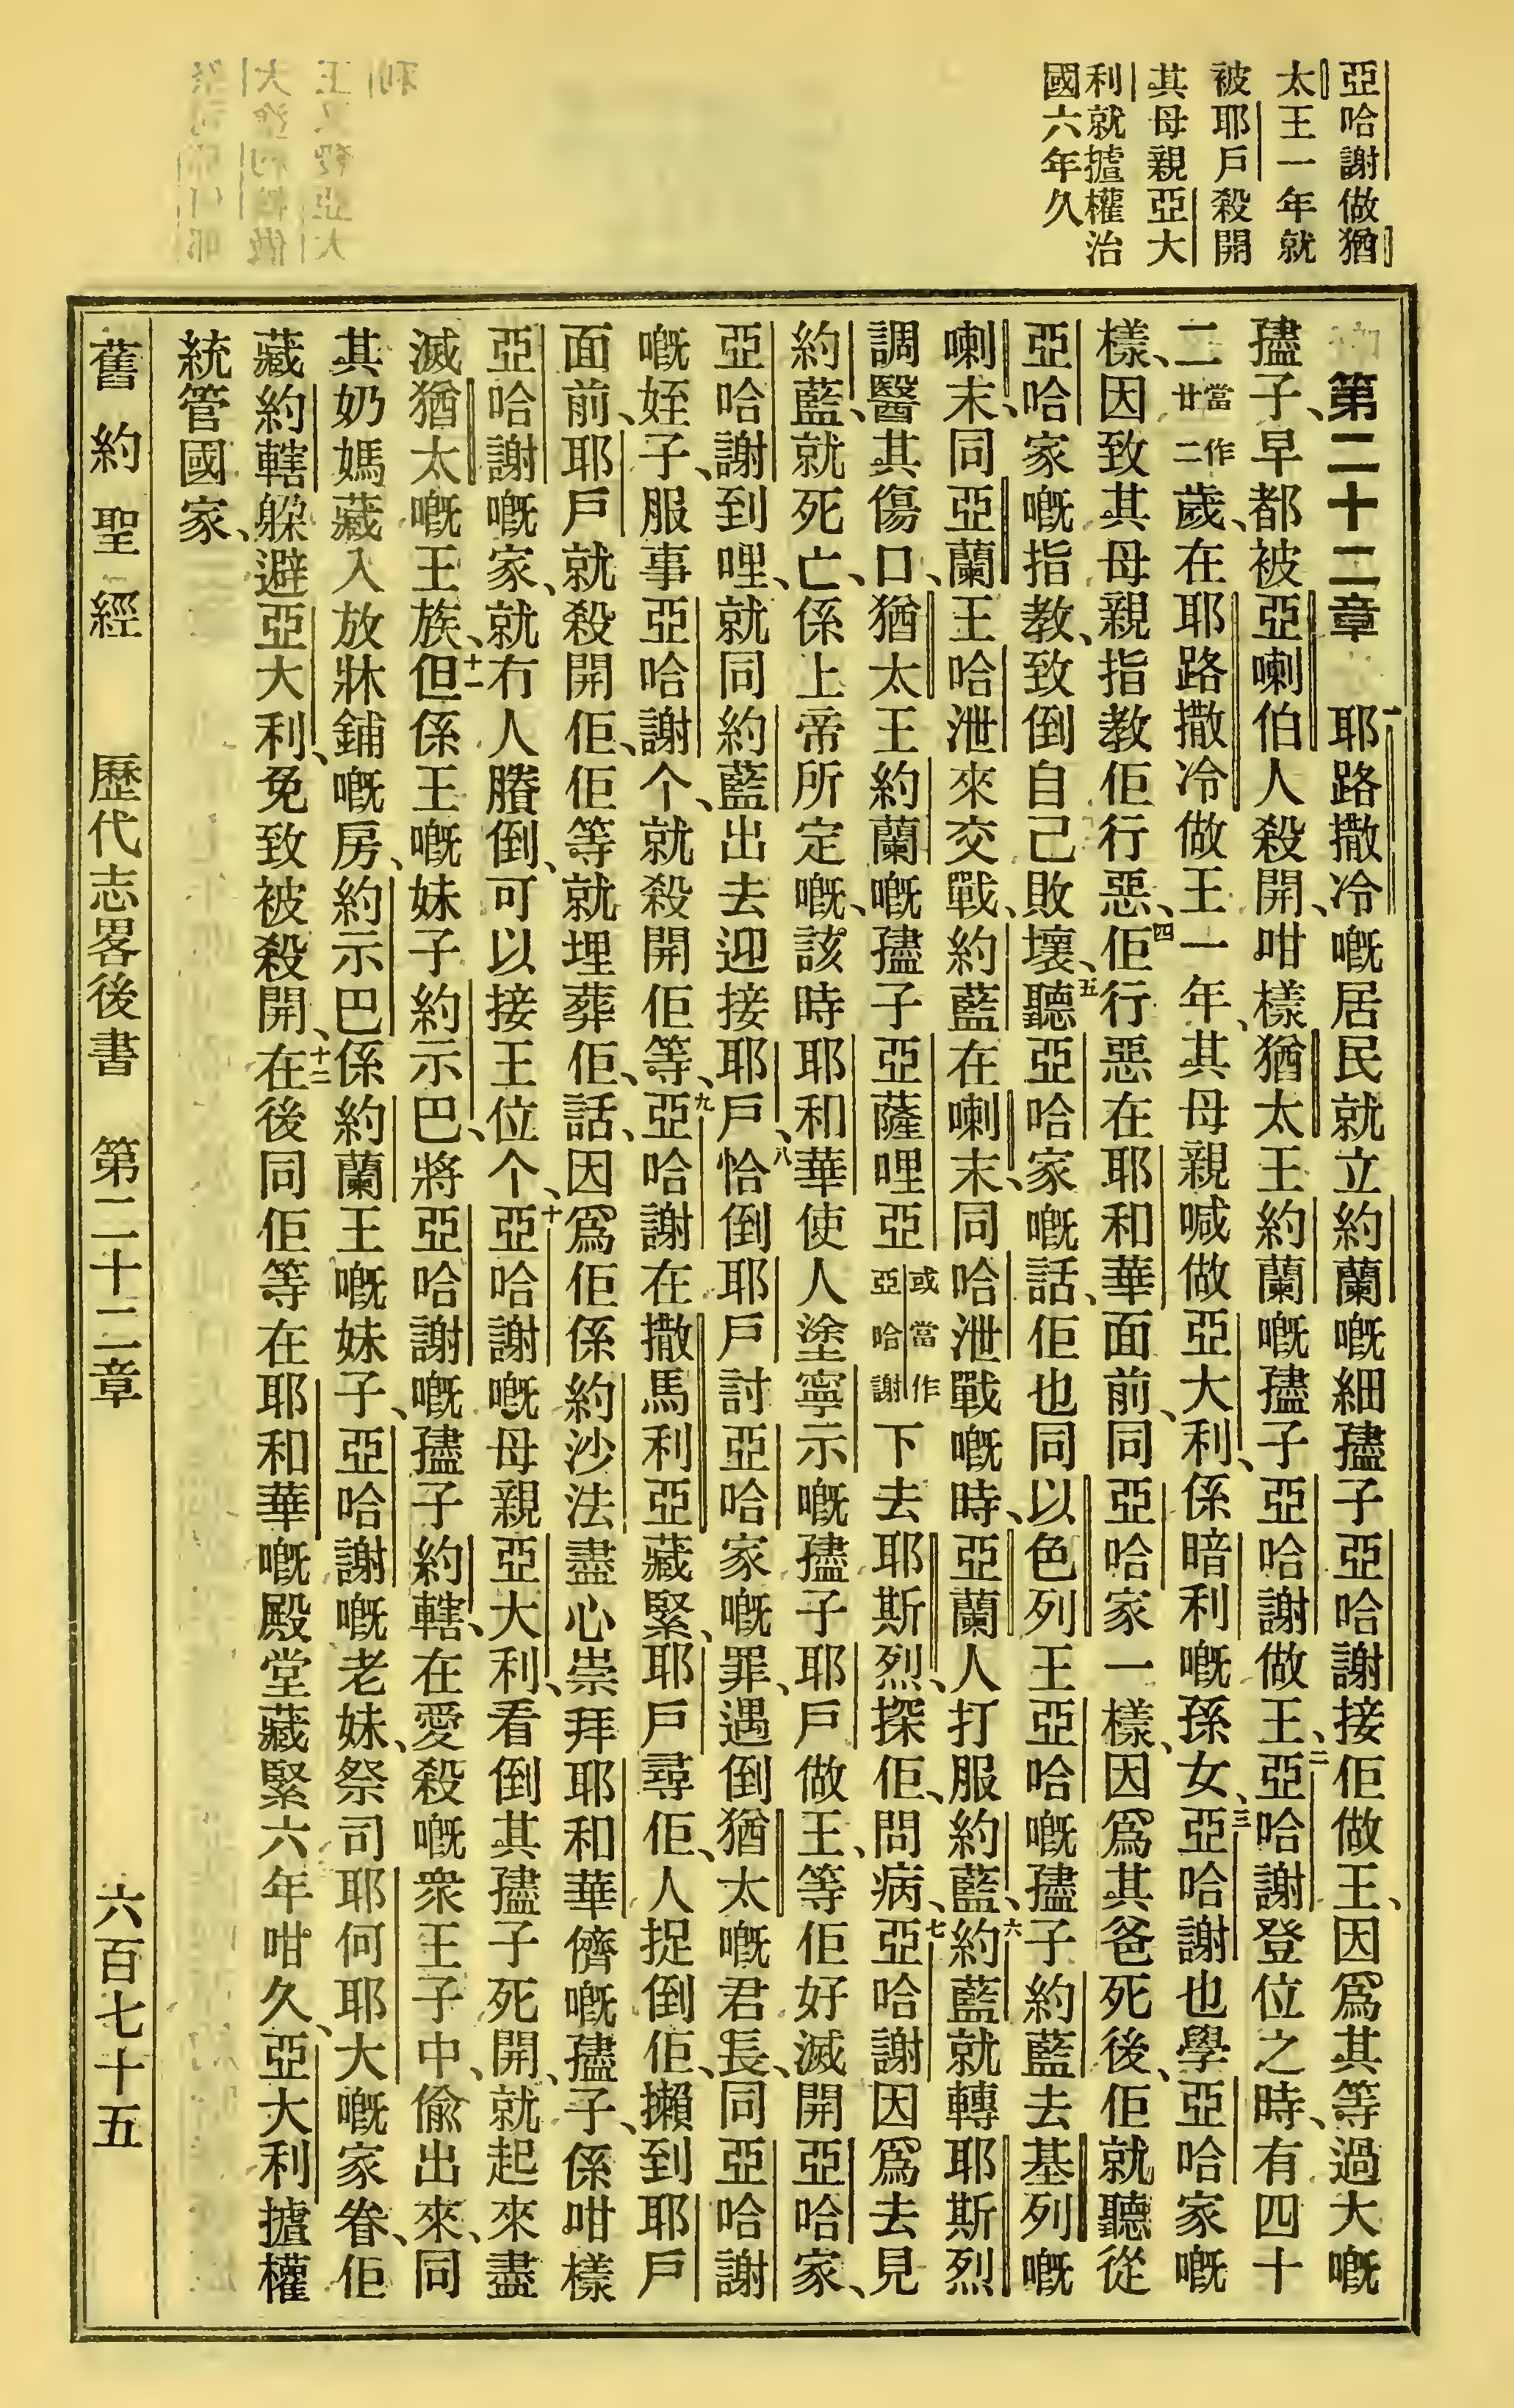 亞哈謝做猶
太王一年就
被耶戶殺開
其母親亞大
利就攄權治
國六年久
第二十二章　一耶路撒冷嘅居民就立約蘭嘅細孻子亞哈謝接佢做王、因爲其等過大嘅
孻子、早都被亞喇伯人殺開、咁樣猶太王約蘭嘅孻子亞哈謝做王、二亞哈謝登位之時、有四十
二當作廿二歲、在耶路撒冷做王一年、其母親喊做亞大利、係暗利嘅孫女、三亞哈謝也學亞哈家嘅
樣、因致其母親指教佢行惡、四佢行惡在耶和華面前、同亞哈家一樣、因爲其爸死後、佢就聽從
亞哈家嘅指教、致倒自己敗壞、五聽亞哈家嘅話、佢也同以色列王亞哈嘅孻子約藍去基列嘅
喇末、同亞蘭王哈泄來交戰、約藍在喇末、同哈泄戰嘅時、亞蘭人打服約藍、六約藍就轉耶斯烈
調醫其傷口、猶太王約蘭嘅孻子亞薩哩亞或當作亞哈謝下去耶斯烈、探佢、問病、七亞哈謝因爲去見
約藍、就死亡、係上帝所定嘅、該時耶和華使人塗寧示嘅孻子耶戶做王、等佢好滅開亞哈家、
亞哈謝到哩、就同約藍出去迎接耶戶、八恰倒耶戶討亞哈家嘅罪、遇倒猶太嘅君長、同亞哈謝
嘅姪子、服事亞哈謝个、就殺開佢等、九亞哈謝在撒馬利亞藏緊、耶戶尋佢、人捉倒佢、攋到耶戶
面前、耶戶就殺開佢、佢等就埋葬佢、話、因爲佢係約沙法盡心崇拜耶和華儕嘅孻子、係咁樣
亞哈謝嘅家、就冇人賸倒、可以接王位个、十亞哈謝嘅母親亞大利、看倒其孻子死開、就起來盡
滅猶太嘅王族、十一但係王嘅妹子約示巴、將亞哈謝嘅孻子約轄、在愛殺嘅衆王子中、偸出來、同
其奶媽藏入放牀鋪嘅房、約示巴係約蘭王嘅妹子、亞哈謝嘅老妹、祭司耶何耶大嘅家眷、佢
藏約轄躲避亞大利、免致被殺開、十二在後同佢等在耶和華嘅殿堂藏緊六年咁久、亞大利攄權
統管國家、
舊約聖經　歷代志畧後書　第二十二章　六百七十五